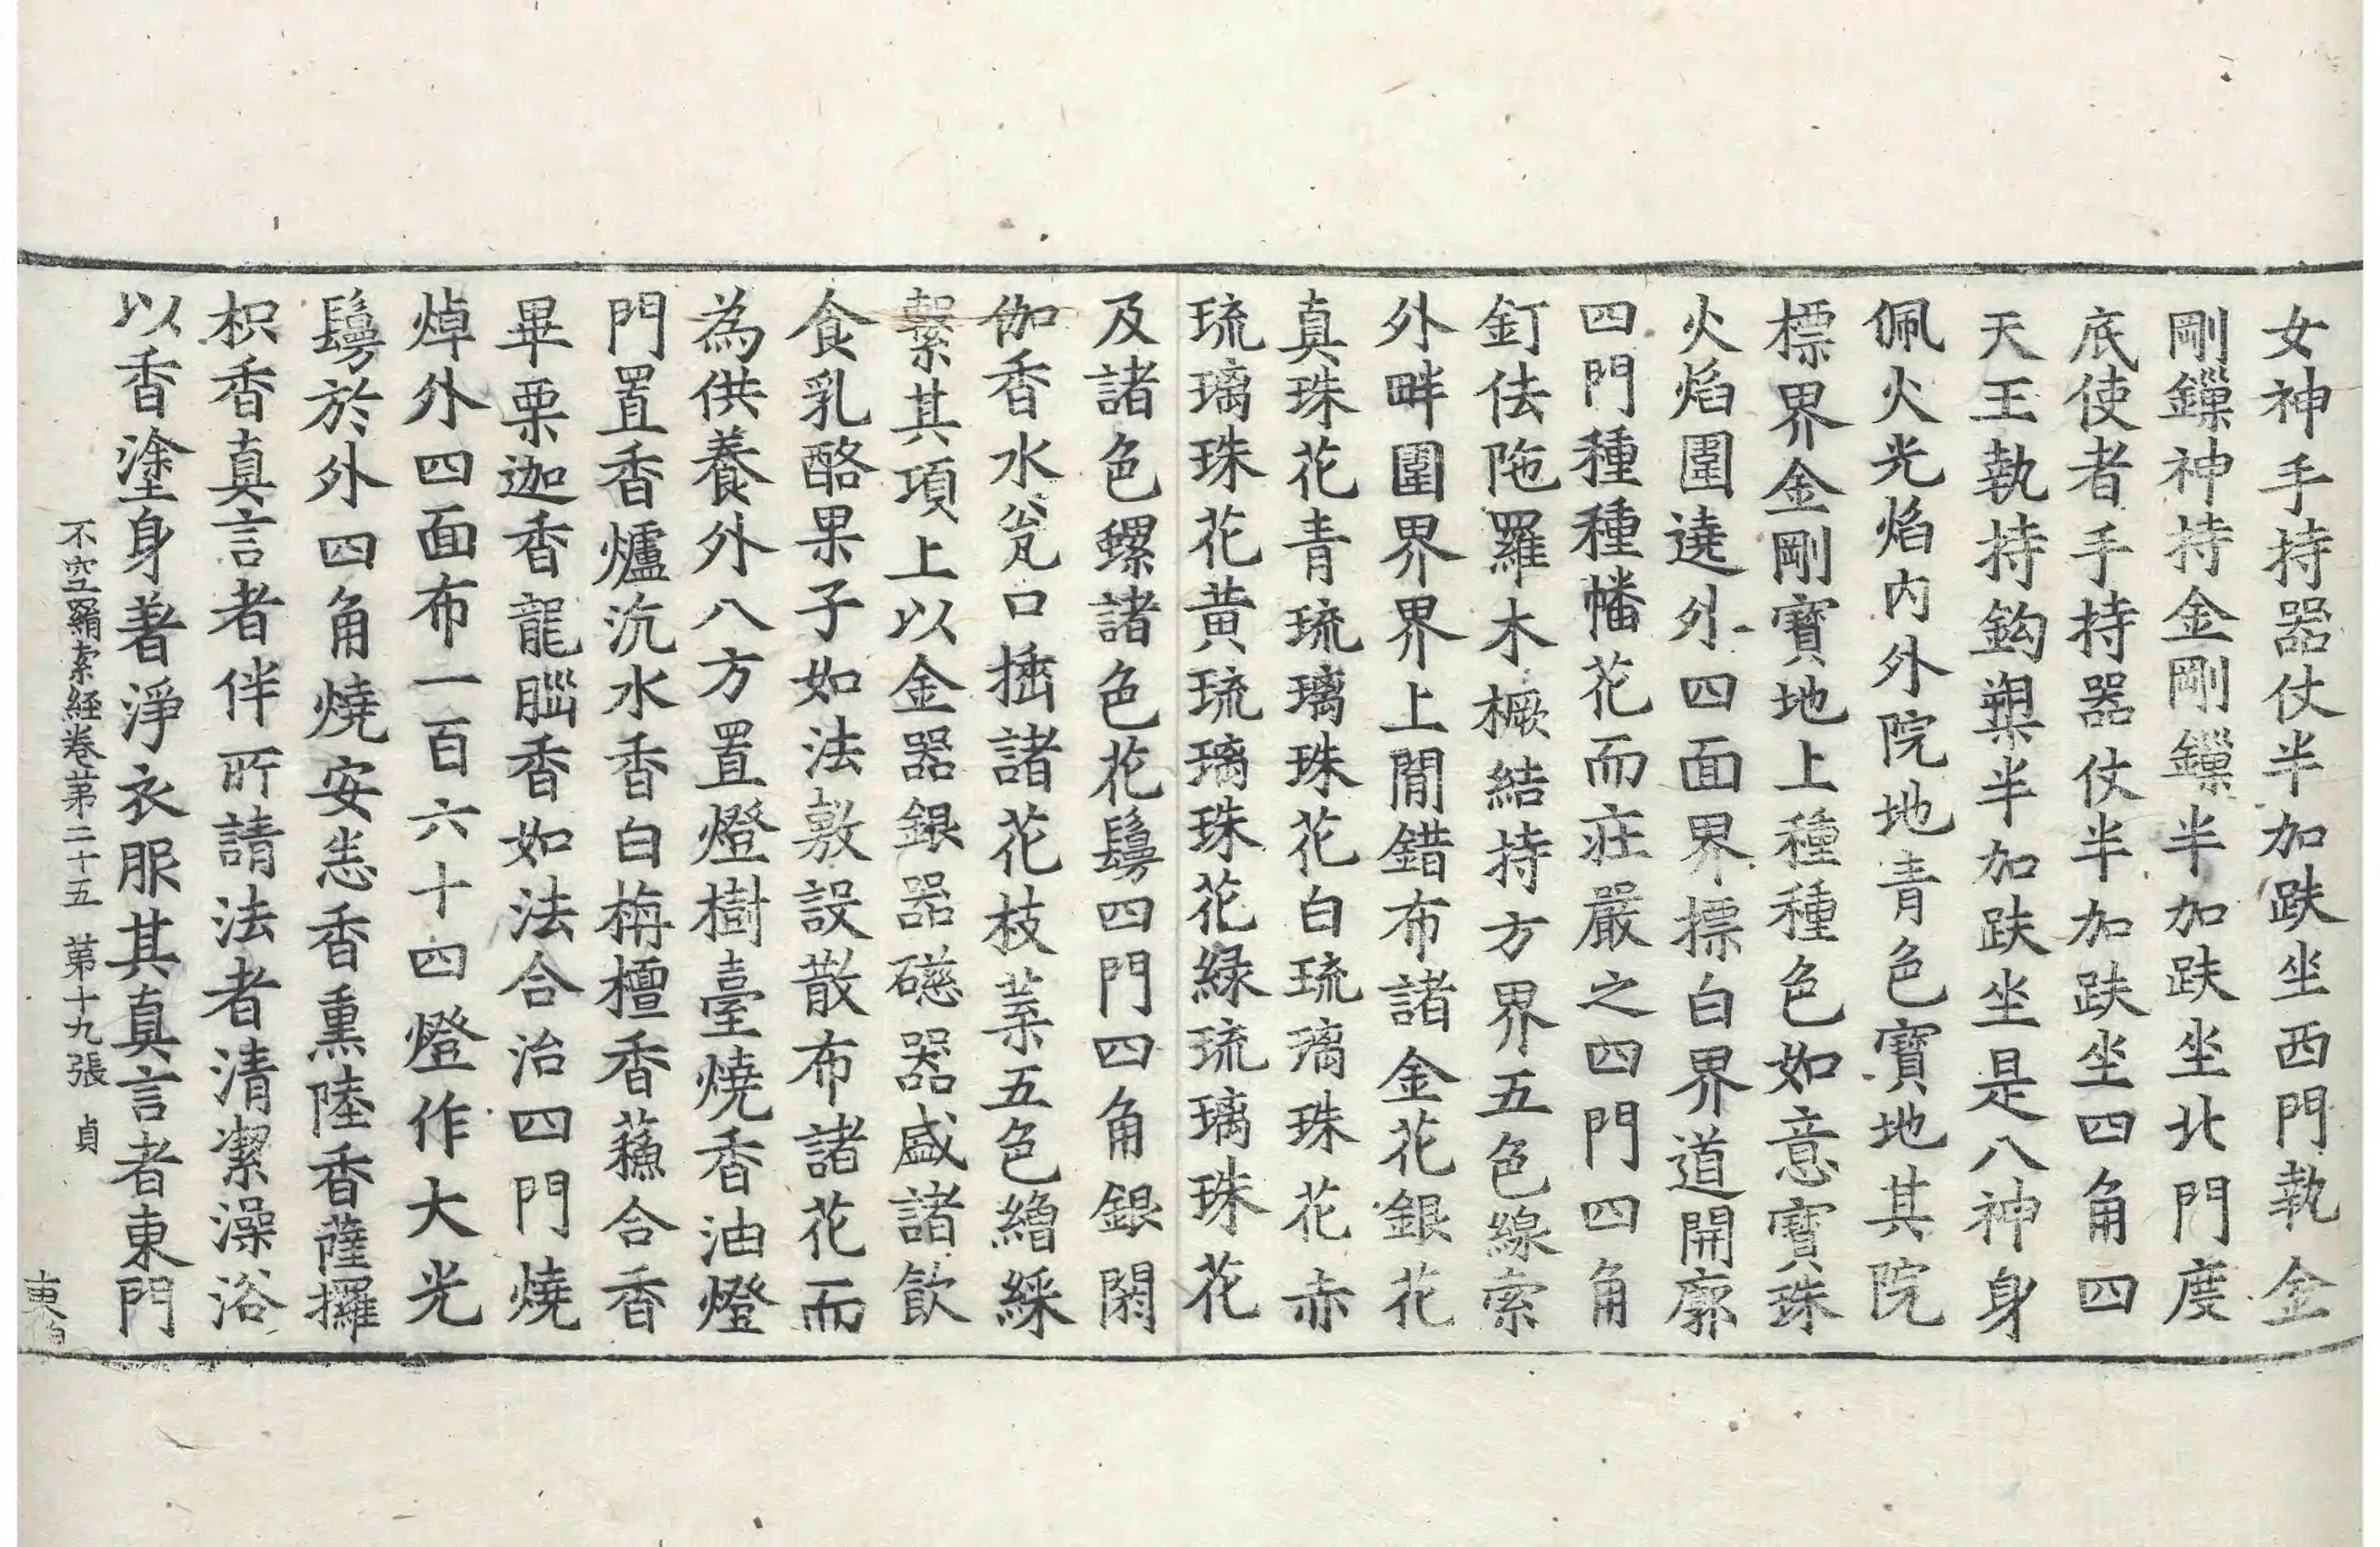 女神手持器仗半加趺坐西門執金
剛鏁神持金剛鏁半加趺坐北門度
底使者手持器仗半加趺坐四角四
天王執持鈎槊半加趺坐是八神身
佩火光焰内外院地青色寶地其院
標界金剛寶地上種種色如意寶珠
火焰圍遶外四面界摽白界道開廓
四門種種幡花而莊嚴之四門四角
釘佉陁羅木橛結持方界五色線索
外畔圍界界上閒錯布諸金花銀花
真珠花青琉璃珠花白琉璃珠花赤
琉璃珠花黄琉璃珠花緑琉璃珠花
及諸色螺諸色花鬘四門四角銀閼
伽香水瓮口揷諸花枝葉五色繒綵
繫其項上以金器銀器礠器盛諸飲
食乳酪果子如法敷設散布諸花而
為供養外八方置燈樹臺燒香油燈
門置香爐沉水香白栴檀香蘓合香
畢栗迦香龍腦香如法合治四門燒
焯外四面布一百六十四燈作大光
鬘於外四角燒安悉香熏陸香薩攞
枳香真言者伴所請法者清潔澡浴
以香塗身著淨衣服其真言者東門
不空羂索経卷第二十五　第十九張　貞